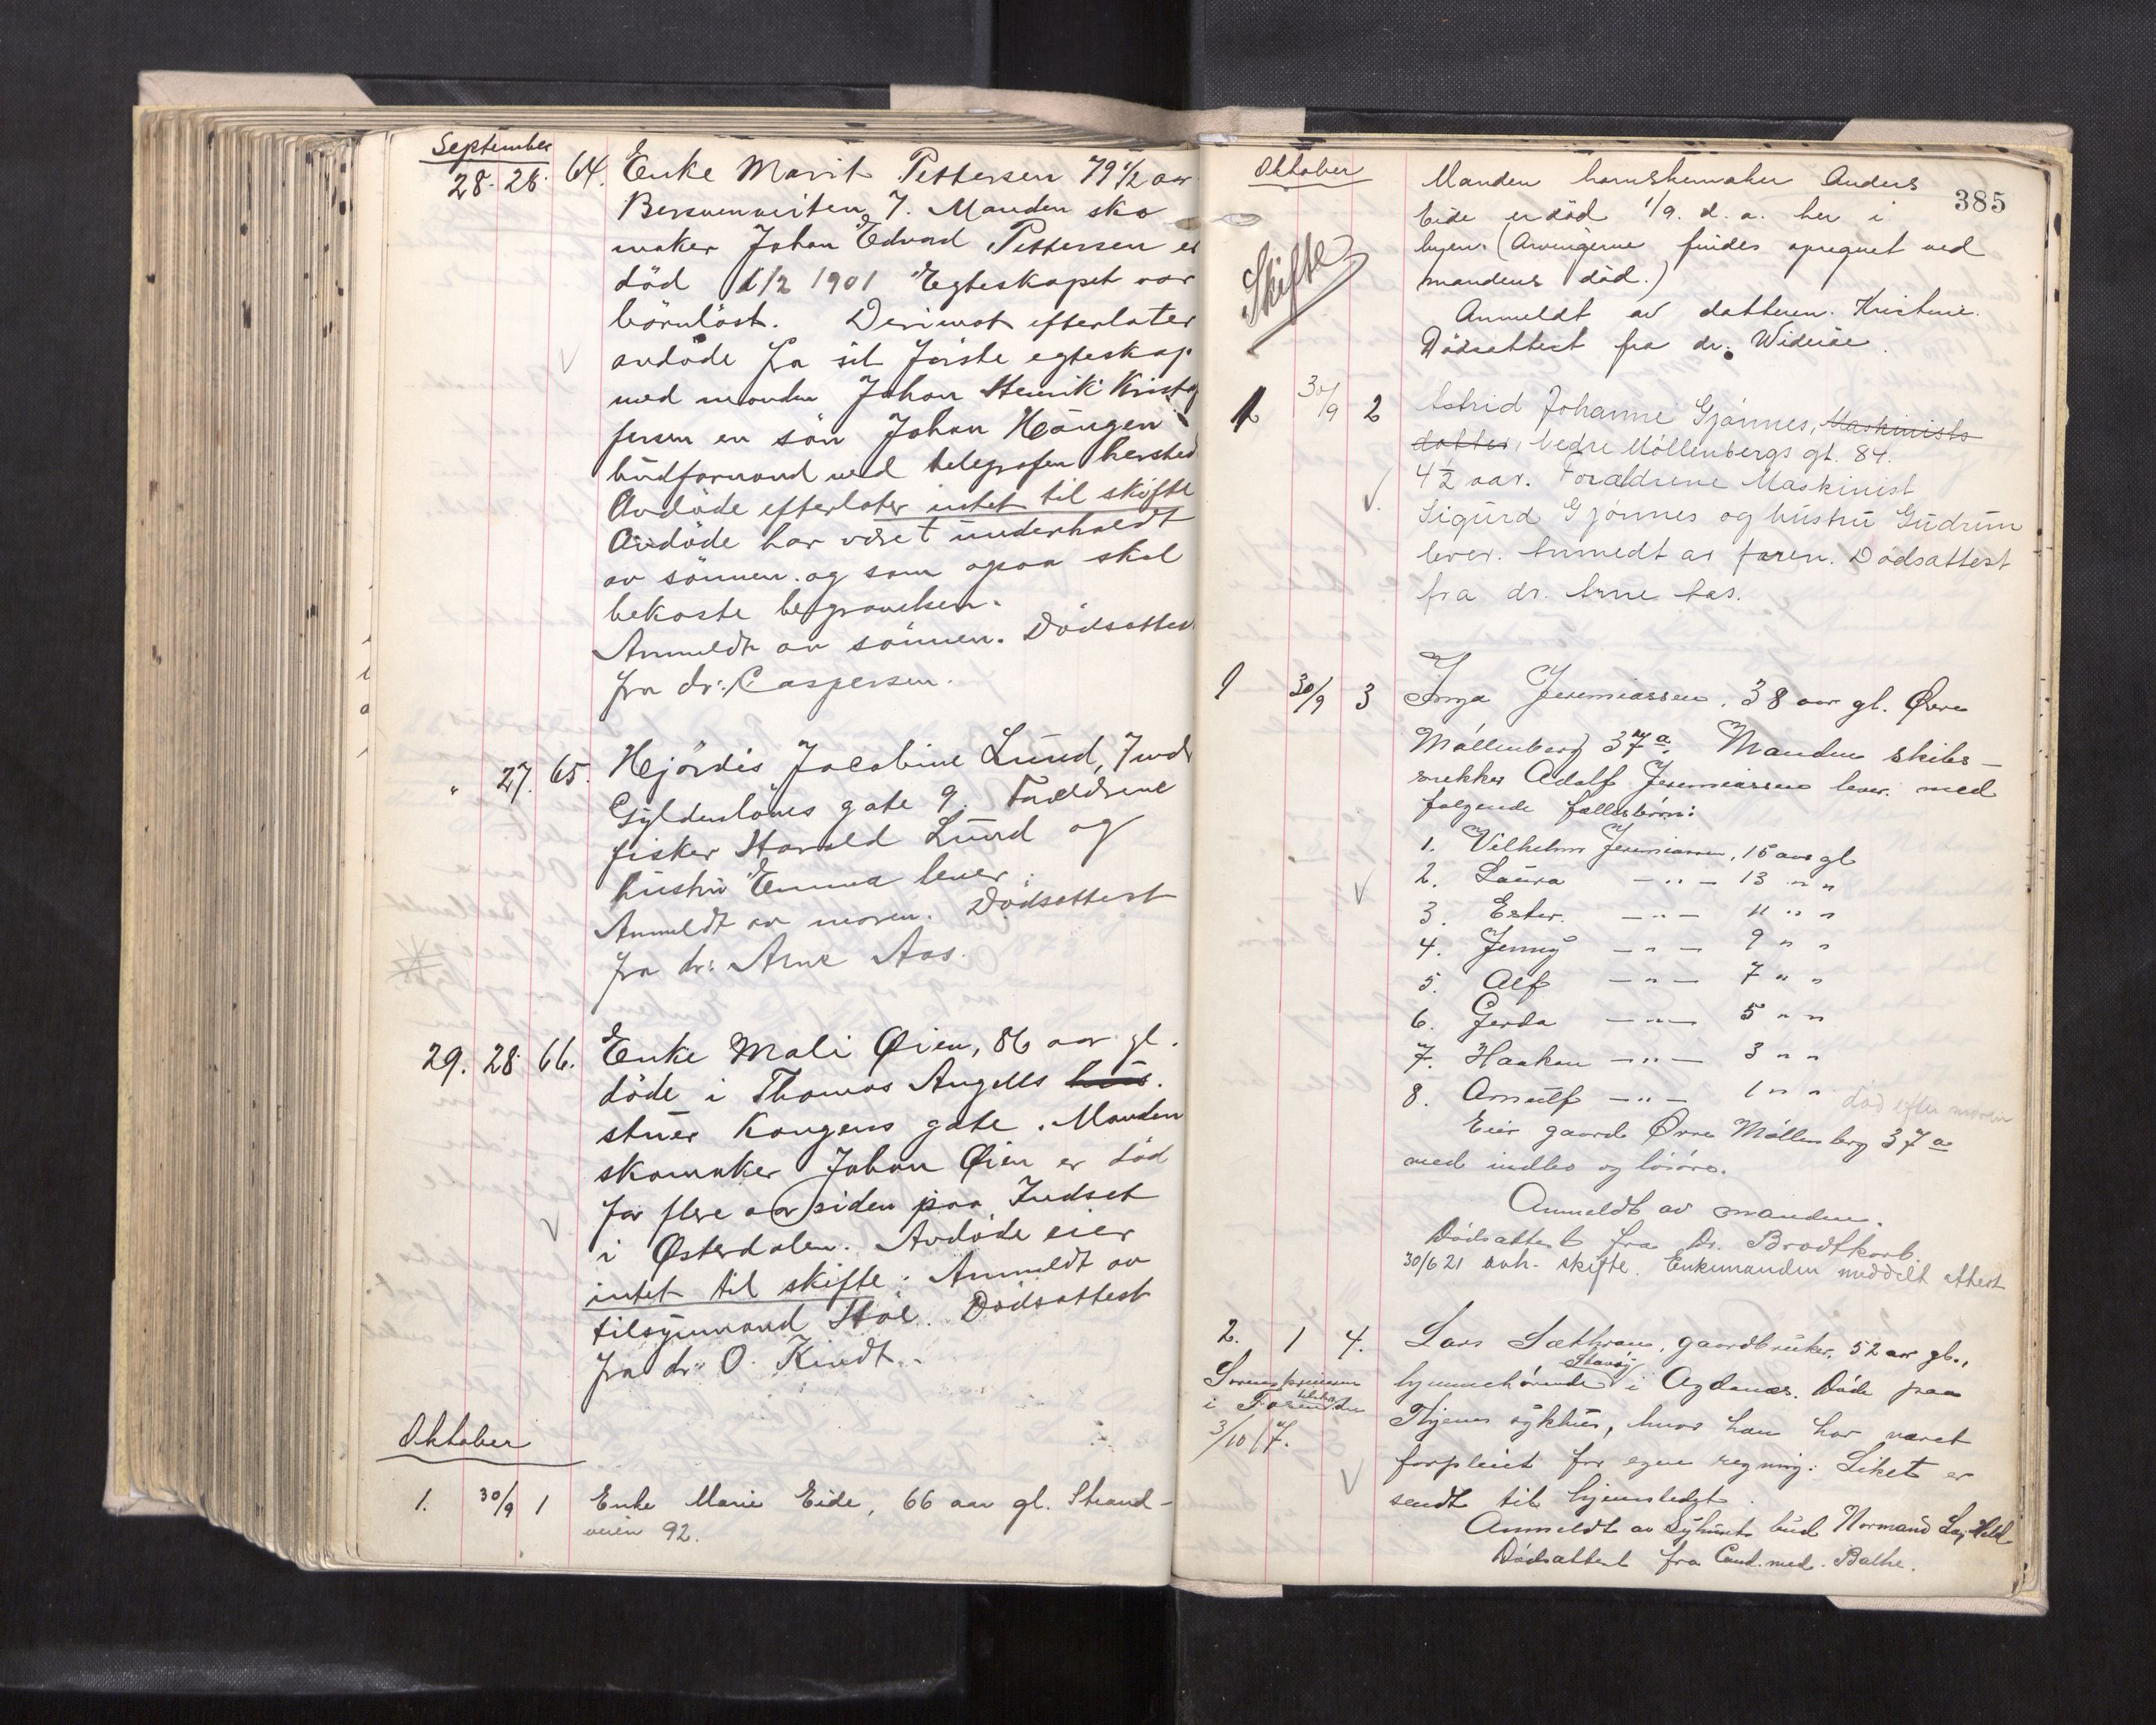 September
28. 26. 64. Enke Marit Pettersen 79 1/2 aar
Bersvenveiten 7. Manden sko
maker Johan Edvard Pettersen er
död 1/2 1901 Egteskapet var
börnlöst. Derimot efterlater
avdöde fra sit förste egteskap
med manden Johan Henrik Kristof
fersen en sön Johan Haugen
budformand ved telegrafen hersted
Avdöde efterlater intet til skifte
Avdöde har været underholdt
av sönnen og som ogsaa skal
bekoste begravelsen.
Anmeldt av sönnen. Dödsattest
fra dr. Caspersen.
" 27. 65. Hjördis Jacobine Lund, 7 md
Gyldenlöves gate 9. Forældrene
fisker Harald Lund og
hustru Emma lever.
Anmeldt av moren. Dödsattest
fra dr. Arne Aas.
29. 28 66. Enke Mali Øien, 86 aar gl.
döde i Thomas Angells hus.
stuer Kongens gate. Manden
skomaker Johan Øien er död
for flere aar siden paa Indset
i Østerdalen. Avdöde eier
intet til skifte. Anmeldt av
tilsynsmand Höe. Dödsattest
fra dr. O. Kindt.
Oktober
1. 30/9 1 Enke Marie Eide, 66 aar gl. Strand-
veien 92.
Oktober
385
Manden harnskemaker Anders
Eide er död 1/9. d. a. her i
byen. (Arvingerne findes opregnet ved
mandens död.)
Skifte
Anmeldt av datteren Kristine.
Dödsattest fra dr. Wideröe.
1 30/9 2 Astrid Johanne Gjönnes, Maskinists
datter, Nedre Möllenbergs gt. 84.
4 1/2 aar. Forældrene Maskinist
Sigurd Gjönnes og hustru Gudrun
lever. Anmeldt av faren. Dödsattest
fra dr. Arne Aas.
1 30/9 3 Inga Jeremiassen, 38 aar gl. Øvre
Möllenberg 37a. Manden skibs-
snekker Adolf Jeremiassen lever med
følgende fællesbörn:
1. Vilhelm Jeremiassen, 15 aar gl
2. Laura —"— 13 " "
3. Ester —"— 11 " "
4. Jenny —"— 9 " "
5. Alf —"— 7 " "
6. Gerda —"— 5 " "
7. Haakon —"— 3 " "
8. Arnulf —"— 1 " " död efter moren
Eier gaard Øvre Möllenberg 37a
med indbo og lösöre.
Anmeldt av manden.
Dödsattest fra Dr. Brodtkorb.
30/6 21 avh. skifte. Enkemanden meddelt attest
2. 1 4. Lars Sæthran, gaardbruker, 52 aar gl.,
hjemmehörende i Agdenes. Döde paa
Sorenskriveren
i Fosen
3/10 17.
Hjems sykhus, hvor han har været
forpleiet for egen regning. Liket er
sendt til hjemstedet.
Anmeldt av Sykhusets bud Normand
Dödsattest fra Cand. med. Bathe.